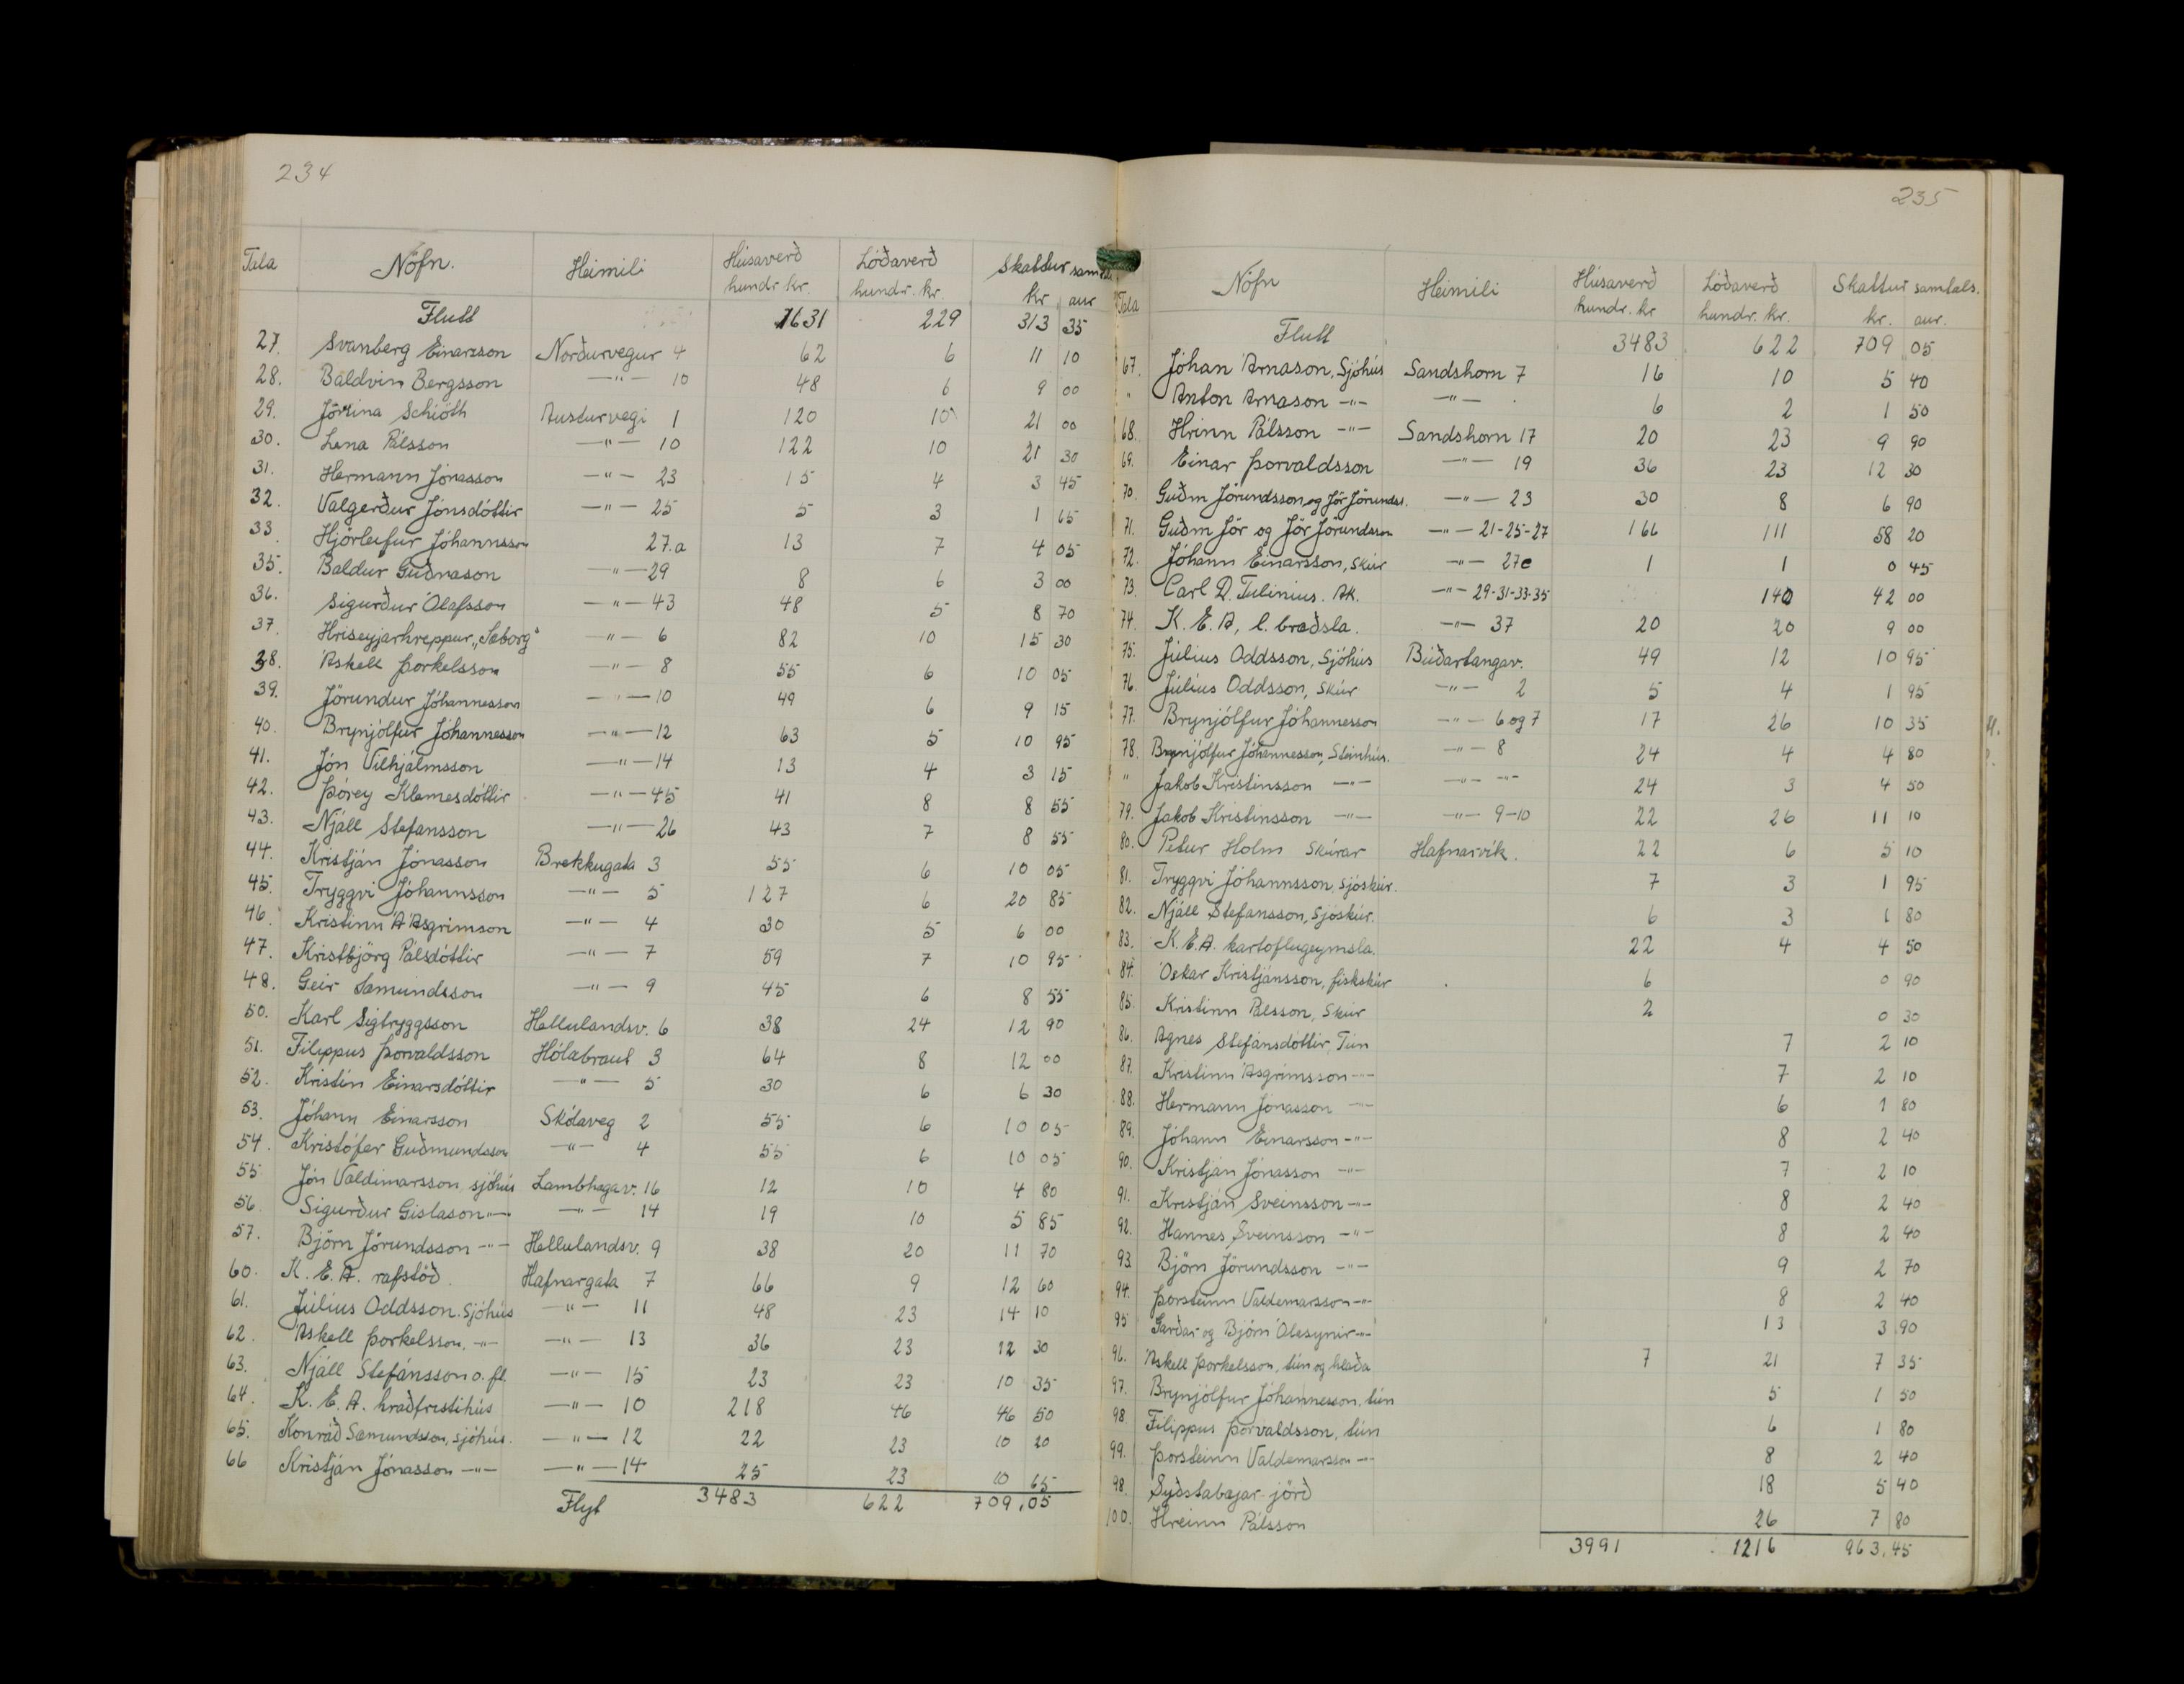 234
Tala Nöfn. Heimili Húsaverð Lóðaverð Skattur
hundr kr. hundr. kr. kr aur
Flutt 1631 229 313 35
27. Svanberg Einarsson Norðurvegur 4 62 6 11 10
28. Baldvin Bergsson —"— 10 48 6 9 00
29. Jónína Schiöth Austurvegi 1 120 10 21 00
30. Lena Pálsson —"— 10 122 10 21 30
31. Hermann Jónasson —"— 23 15 4 3 45
32. Valgerður Jónsdóttir —"— 25 5 3 1 65
33. Hjörleifur Jóhannsson 27.a 13 7 4 05
35. Baldur Guðnason —"— 29 8 6 3 00
36. Sigurður Ólafsson —"— 43 48 5 8 70
37. Hríseyjarhreppur „Sæborg" —"— 6 82 10 15 30
38. Áskell Þorkelsson —"— 8 55 6 10 05
39. Jörundur Jóhannesson —"— 10 49 6 9 15
40. Brynjólfur Jóhannesson —"— 12 63 5 10 95
41. Jón Vilhjálmsson —"— 14 13 4 3 15
42. Þórey Klemesdóttir —"— 45 41 8 8 55
43. Njáll Stefansson —"— 26 43 7 8 55
44. Kristján Jónasson Brekkugata 3 55 6 10 05
45. Tryggvi Jóhannsson —"— 5 127 6 20 85
46. Kristinn Á Ásgrimson —"— 4 30 5 6 00
47. Kristbjörg Pálsdóttir —"— 7 59 7 10 95
48. Geir Sæmundsson —"— 9 45 6 8 55
50. Karl Sigtryggsson Hellulandsv. 6 38 24 12 90
51. Filippus Þorvaldsson Hólabraut 3 64 8 12 00
52. Kristín Einarsdóttir —"— 5 30 6 6 30
53. Jóhann Einarsson Skólaveg 2 55 6 10 05
54. Kristófer Guðmundsson —"— 4 55 6 10 05
55 Jón Valdimarsson, sjóhús Lambhagav. 16 12 10 4 80
56. Sigurður Gislason —"— —"— 14 19 10 5 85
57. Björn Jörundsson —"— Hellulandsv. 9 38 20 11 70
60. K. E. A. rafstöð. Hafnargata 7 66 9 12 60
61. Júlíus Oddsson. Sjóhús —"— 11 48 23 14 10
62. Áskell Þorkelsson, —"— —"— 13 36 23 12 30
63. Njáll Stefánsson o. fl. —"— 15 23 23 10 35
64. K. E. A. hraðfristihús —"— 10 218 46 46 50
65. Konráð Sæmundsson, sjóhús. —"— 12 22 23 10 20
66 Kristján Jónasson —"— —"— 14 25 23 10 65
Flyt 3483 622 709,05
235
Tala Nöfn Heimili Húsaverð Lóðaverð Skattur samtals.
hundr. kr hundr. kr. kr. aur.
Flutt 3483 622 709 05
67. Jóhan Árnason, Sjóhús Sandshorn 7 16 10 5 40
" Anton Árnason —"— —"— 6 2 1 50
68. Hrinn Pálsson —"— Sandshorn 17 20 23 9 90
69. Einar Þorvaldsson —"— 19 36 23 12 30
70. Guðm Jörundsson og Jör Jörundss. —"— 23 30 8 6 90
71. Guðm Jör og Jör Jörundsson —"— 21-25-27 166 111 58 20
72. Jóhann Einarsson, Skúr —"— 27e 1 1 0 45
73. Carl D. Tulinius. Ak. —"— 29-31-33-35 140 42 00
74. K. E. A, l. bræðsla. —"— 37 20 20 9 00
75. Júlíus Oddsson, Sjóhús Búðartangav. 49 12 10 95
76. Júlíus Oddsson, Skúr —"— 2 5 4 1 95
77. Brynjólfur Jóhannesson —"— 6 og 7 17 26 10 35
78. Brynjólfur Jóhannesson, Steinhús. —"— 8 24 4 4 80
" Jakob Kristinsson —"— —"— —"— 24 3 4 50
79. Jakob Kristinsson —"— —"— 9-10 22 26 11 10
80. Petur Holm Skúrar Hafnarvík. 22 6 5 10
81. Tryggvi Jóhannsson, sjóskúr. 7 3 1 95
82. Njáll Stefansson, Sjóskúr. 6 3 1 80
83. K. E. A. kartoflugeymsla. 22 4 4 50
84. Óskar Kristjánsson, fiskskúr 6 0 90
85. Kristinn Pálsson, Skúr 2 0 30
86. Agnes Stefánsdóttir, Tún 7 2 10
87. Kristinn Ásgrímsson —"— 7 2 10
88. Hermann Jónasson —"— 6 1 80
89. Jóhann Einarsson —"— 8 2 40
90. Kristján Jónasson —"— 7 2 10
91. Kristján Sveinsson —"— 8 2 40
92. Hannes Sveinsson —"— 8 2 40
93. Björn Jörundsson —"— 9 2 70
94. Þorsteinn Valdemarsson —"— 8 2 40
95 Garðar og Björn Ólasynir —"— 13 3 90
96. Áskell Þorkelsson, tún og hlaða 7 21 7 35
97. Brynjólfur Jóhannesson, tún 5 1 50
98. Filippus Þorvaldsson, tún 6 1 80
99. Þorsteinn Valdemarsson —"— 8 2 40
98. Syðstabæjar jörð 18 5 40
100. Hreinn Pálsson 26 7 80
3991 1216 963,45